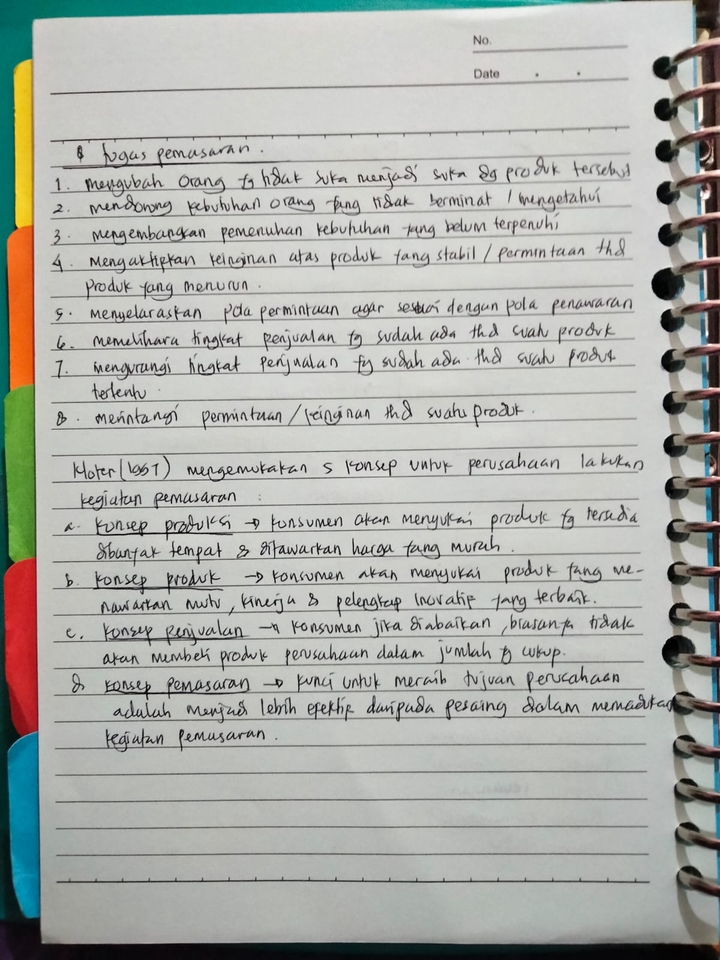 No.
Date
8 tugas pemasaran.
1. mengubah orang yg tidak suka menjadi suka dg produk tersebut
2. mendorong kebutuhan orang yang tidak berminat / mengetahui
3. mengembangkan pemenuhan kebutuhan yang belum terpenuhi
4. Mengaktifkan keinginan atas produk yang stabil / permintaan thd
produk yang menurun.
5. menyelaraskan pola permintaan agar sesuai dengan pola penawaran
6. memelihara tingkat penjualan yg sudah ada thd suatu produk
7. mengurangi tingkat penjualan yg sudah ada thd suatu produk
tertentu.
8. merintangi permintaan / keinginan thd suatu produk.
Kloter (1997) mengemukakan 5 konsep untuk perusahaan lakukan
kegiatan pemasaran :
a. konsep produksi → konsumen akan menyukai produk yg tersedia
dibanyak tempat & ditawarkan harga yang murah.
b. konsep produk → konsumen akan menyukai produk yang me-
nawarkan mutu, kinerja & pelengkap inovatif yang terbaik.
c. konsep penjualan → konsumen jika diabaikan, biasanya tidak
akan membeli produk perusahaan dalam jumlah yg cukup.
d konsep pemasaran → kunci untuk meraih tujuan perusahaan
adalah menjadi lebih efektif daripada pesaing dalam memadukan
kegiatan pemasaran.